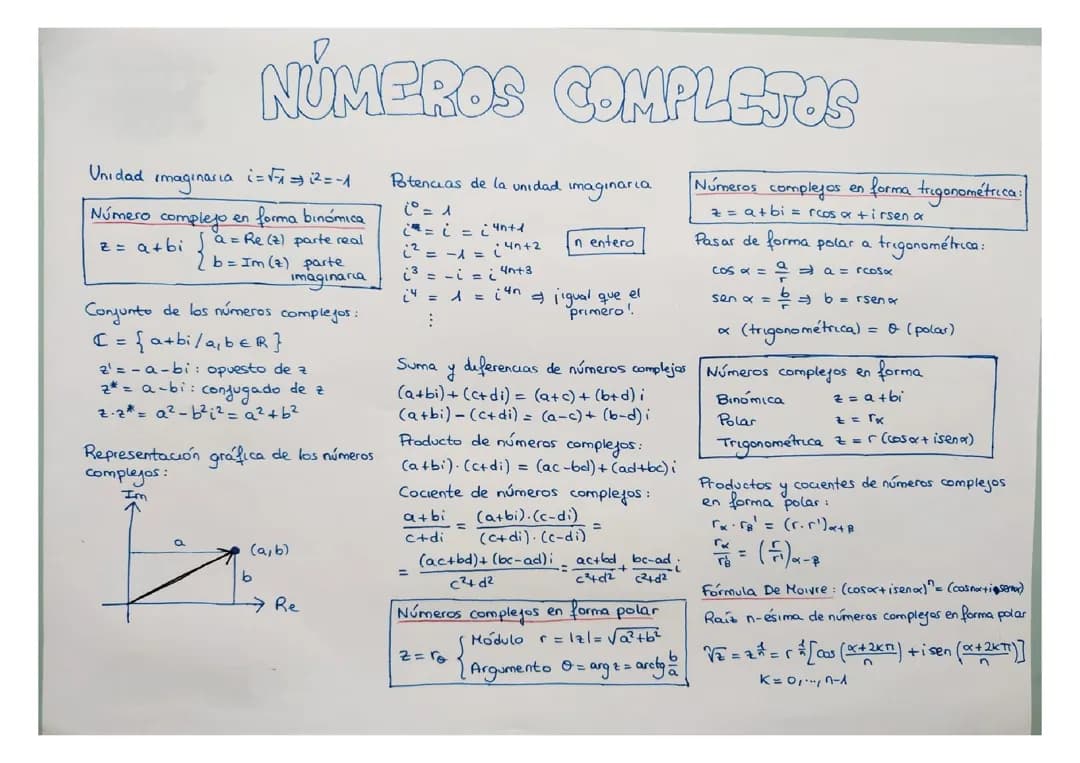 NÚMEROS COMPLEJOS
Unidad imaginaria i=√-1 ⇒ i²=-1
Número complejo en forma binómica
z = a+bi { a = Re(z) parte real
b = Im(z) parte
imaginaria
Conjunto de los números complejos:
ℂ = {a+bi/a,b ∈ ℝ}
z' = -a-bi: opuesto de z
z* = a-bi: conjugado de z
z·z* = a²-b²i² = a²+b²
Representación gráfica de los números
complejos:
Im
a
(a,b)
b
Re
Potencias de la unidad imaginaria
i⁰ = 1
i = i = i⁴ⁿ⁺¹
i² = -1 = i⁴ⁿ⁺²
n entero
i³ = -i = i⁴ⁿ⁺³
i⁴ = 1 = i⁴ⁿ ⇒ ¡igual que el
primero!
⋮
Suma y diferencias de números complejos
(a+bi)+(c+di) = (a+c)+(b+d)i
(a+bi)-(c+di) = (a-c)+(b-d)i
Producto de números complejos:
(a+bi)·(c+di) = (ac-bd)+(ad+bc)i
Cociente de números complejos:
a+bi/c+di = (a+bi)·(c-di)/(c+di)·(c-di) =
= (ac+bd)+(bc-ad)i/c²+d² = ac+bd/c²+d² + bc-ad/c²+d² i
Números complejos en forma polar
z = r_θ { Módulo r = |z| = √a²+b²
Argumento θ = arg z = arctg b/a
Números complejos en forma trigonométrica:
z = a+bi = rcos α + i rsen α
Pasar de forma polar a trigonométrica:
cos α = a/r ⇒ a = rcosα
sen α = b/r ⇒ b = rsenα
α (trigonométrica) = θ (polar)
Números complejos en forma
Binómica z = a+bi
Polar z = r_α
Trigonométrica z = r (cosα + isenα)
Productos y cocientes de números complejos
en forma polar:
r_α · r_β' = (r·r')_α+β
r_α/r'_β = (r/r')_α-β
Fórmula De Moivre: (cosα+isenα)ⁿ = (cosnα+isennα)
Raíz n-ésima de números complejos en forma polar
ⁿ√z = z^1/n = r^1/n [cos (α+2kπ/n) + i sen (α+2kπ/n)]
K = 0,...,n-1